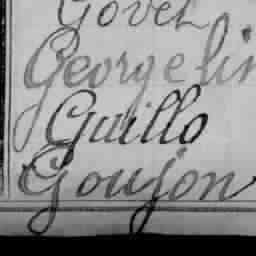 Govet
Georgelin
Guillo
Goujon